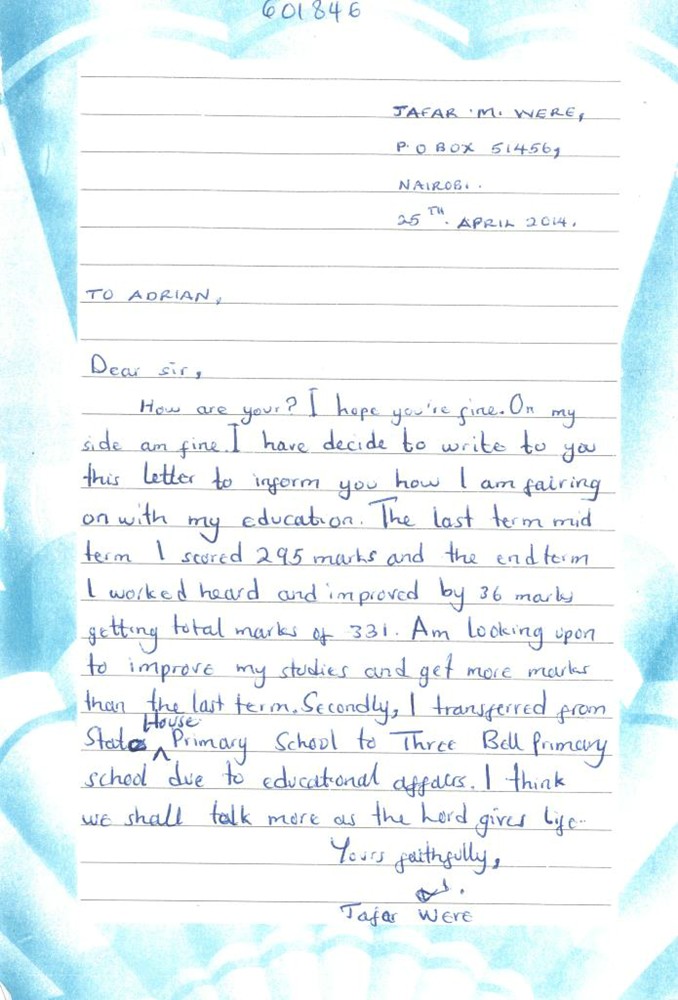 601846
JAFAR .M. WERE,
P.O BOX 51456,
NAIROBI.
25TH. APRIL 2014.
TO ADRIAN,
Dear sir,
How are your? I hope you're fine. On my
side am fine. I have decide to write to you
this letter to inform you how I am fairing
on with my education. The last term mid
term I scored 295 marks and the endterm
I worked heard and improved by 36 marks
getting total marks of 331. Am looking upon
to improve my studies and get more marks
than the last term. Secondly, I transferred from
State House Primary School to Three Bell primary
school due to educational affaers. I think
we shall talk more as the Lord gives life.
Yours faithfully,
Jafar WERE